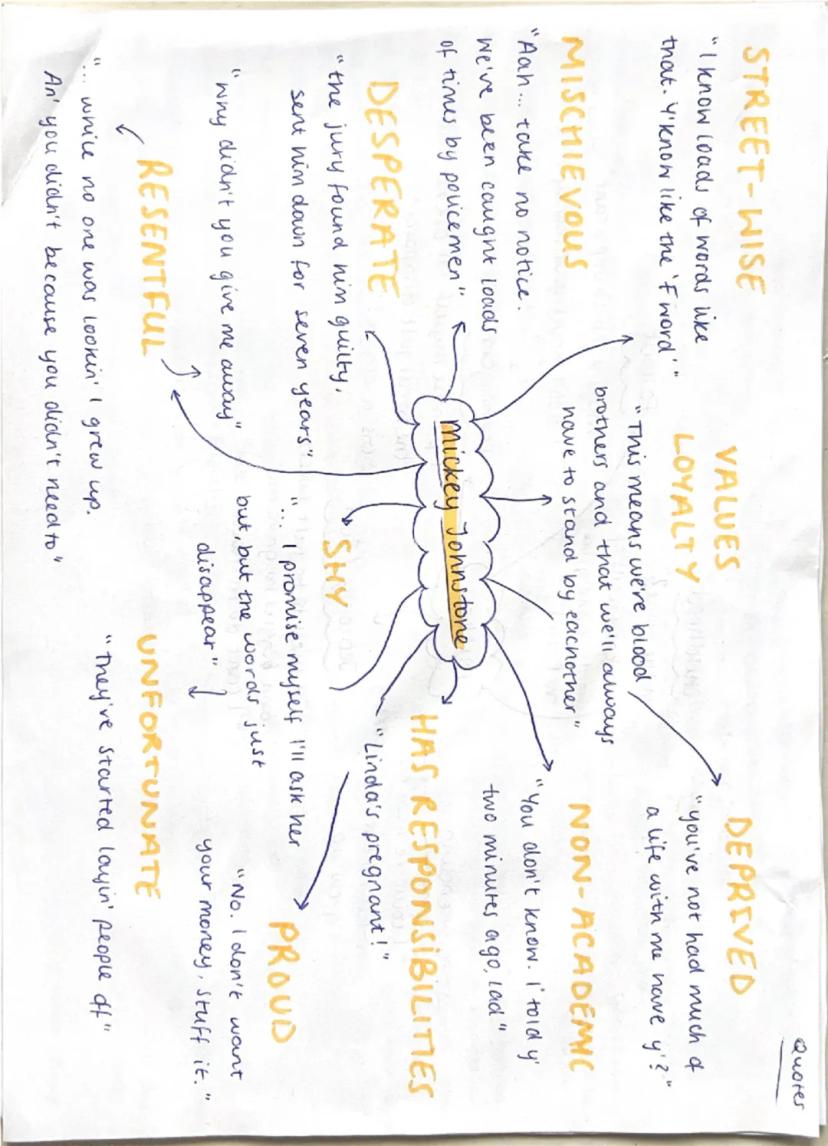 Quotes
STREET-WISE
"I know loads of words like
that. Y'know like the 'F word'."
VALUES
LOYALTY
"This means we're blood
brothers and that we'll always
have to stand by eachother"
DEPRIVED
"you've not had much of
a life with me have y'?"
MISCHIEVOUS
"Aah... take no notice.
We've been caught loads
of times by policemen"
NON-ACADEMIC
"You don't know. I told y'
two minutes ago, lad"
Mickey Johnstone
HAS RESPONSIBILITIES
"Linda's pregnant!"
DESPERATE
"the jury found him guilty,
sent him down for seven years"
"Why didn't you give me away"
SHY
"... I promise myself I'll ask her
but, but the words just
disappear"
PROUD
"No. I don't want
your money, stuff it."
RESENTFUL
"... while no one was lookin' I grew up.
An' you didn't because you didn't need to"
UNFORTUNATE
"they've started layin' people off"